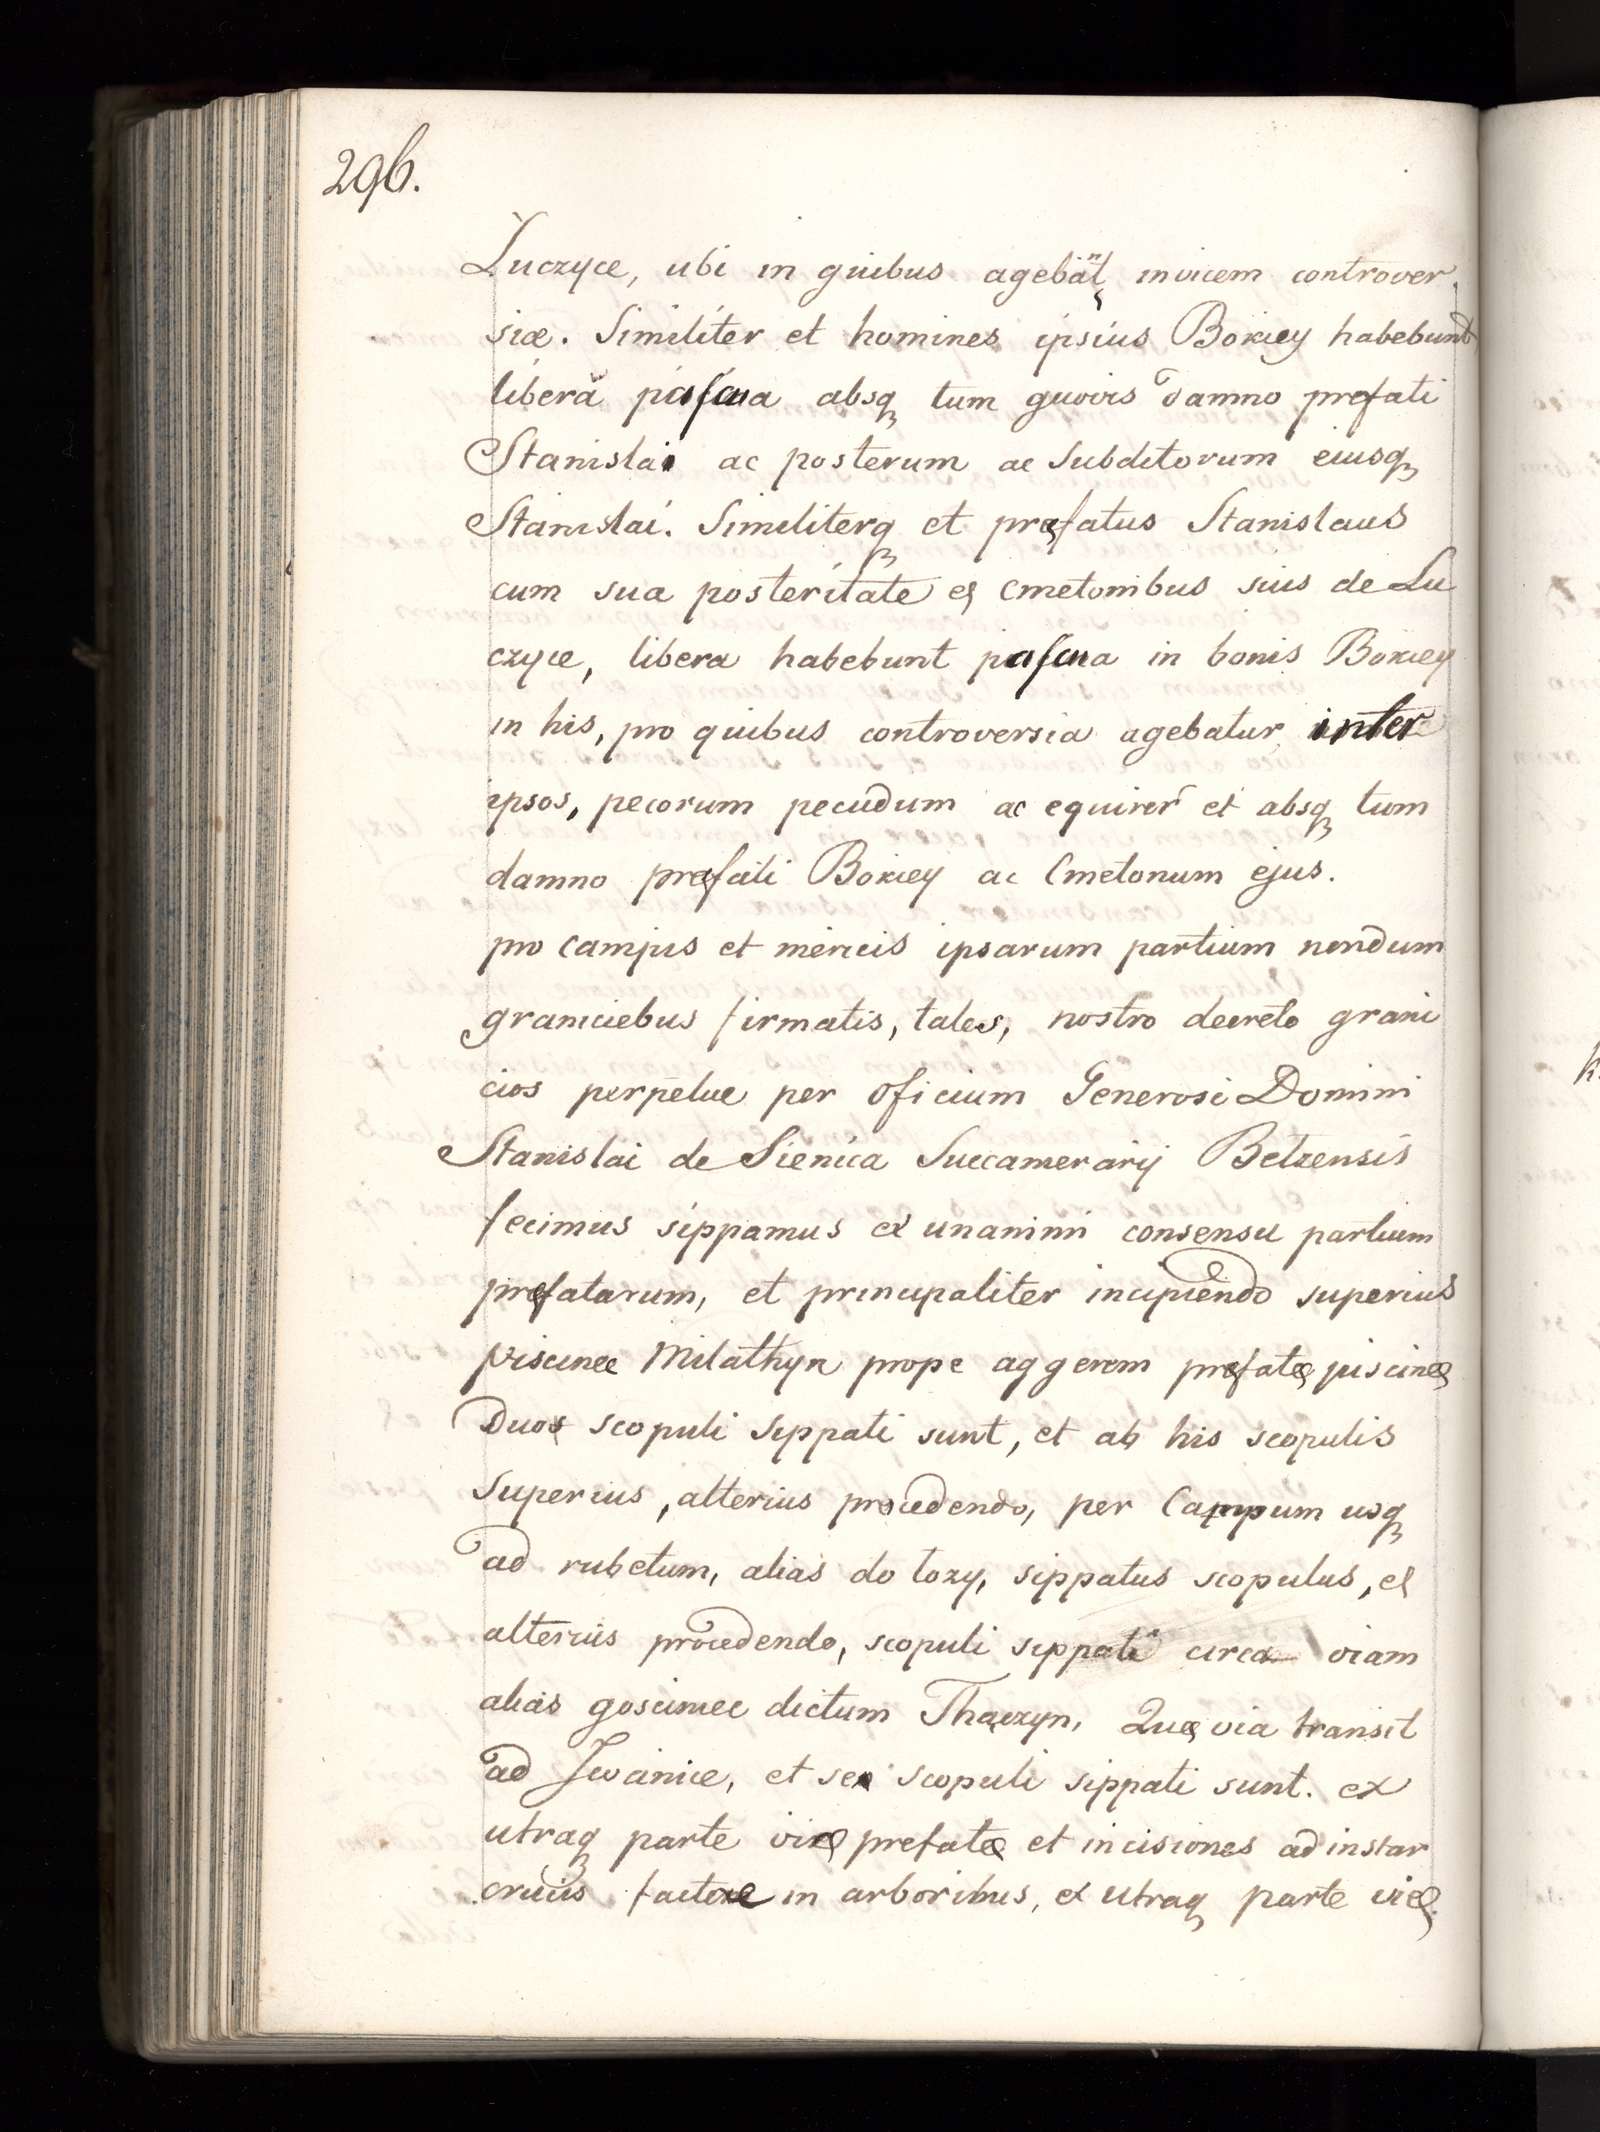 296.
Łuczyce, ubi in quibus agebãt, invicem controver
siæ. Similiter et homines ipsius Bokiey habebunt
libera pascua absq tum quovis damno prefati
Stanislai ac posterum ac Subditorum eiusq
Stanislai. Similiterq et prefatus Stanislaus
cum sua posteritate et Cmetonibus suis de Lu
czyce, libera habebunt pascua in bonis Bokiey
in his, pro quibus controversia agebatur inter
ipsos, pecorum pecudum ac equirer et absq tum
damno prefati Bokiey ac Cmetonum ejus.
pro campis et mericis ipsarum partium nondum
graniciebus firmatis, tales, nostro decreto grani
cies perpetue per oficium Generosi Domini
Stanislai de Sienica Succamerarij Belzensis
fecimus sippamus ex unanimi consensu partium
prefatarum, et principaliter incipiendo superius
piscinæ Milathyn prope aggerem prefatæ piscinæ
Duos scopuli sippati sunt, et ab his scopulis
Superius, alterius procedendo, per Campum usq
ad rubetum, alias do lozy, sippatus scopulus, et
alterius procedendo, scopuli sippati circa viam
alias gosciniec dictum Thaczyn, Quæ via transit
ad Iwanice, et sex scopuli sippati sunt. ex
utraq parte viæ prefatæ et incisiones ad instar
crucis factæ in arboribus, ex utraq parte viæ
k.